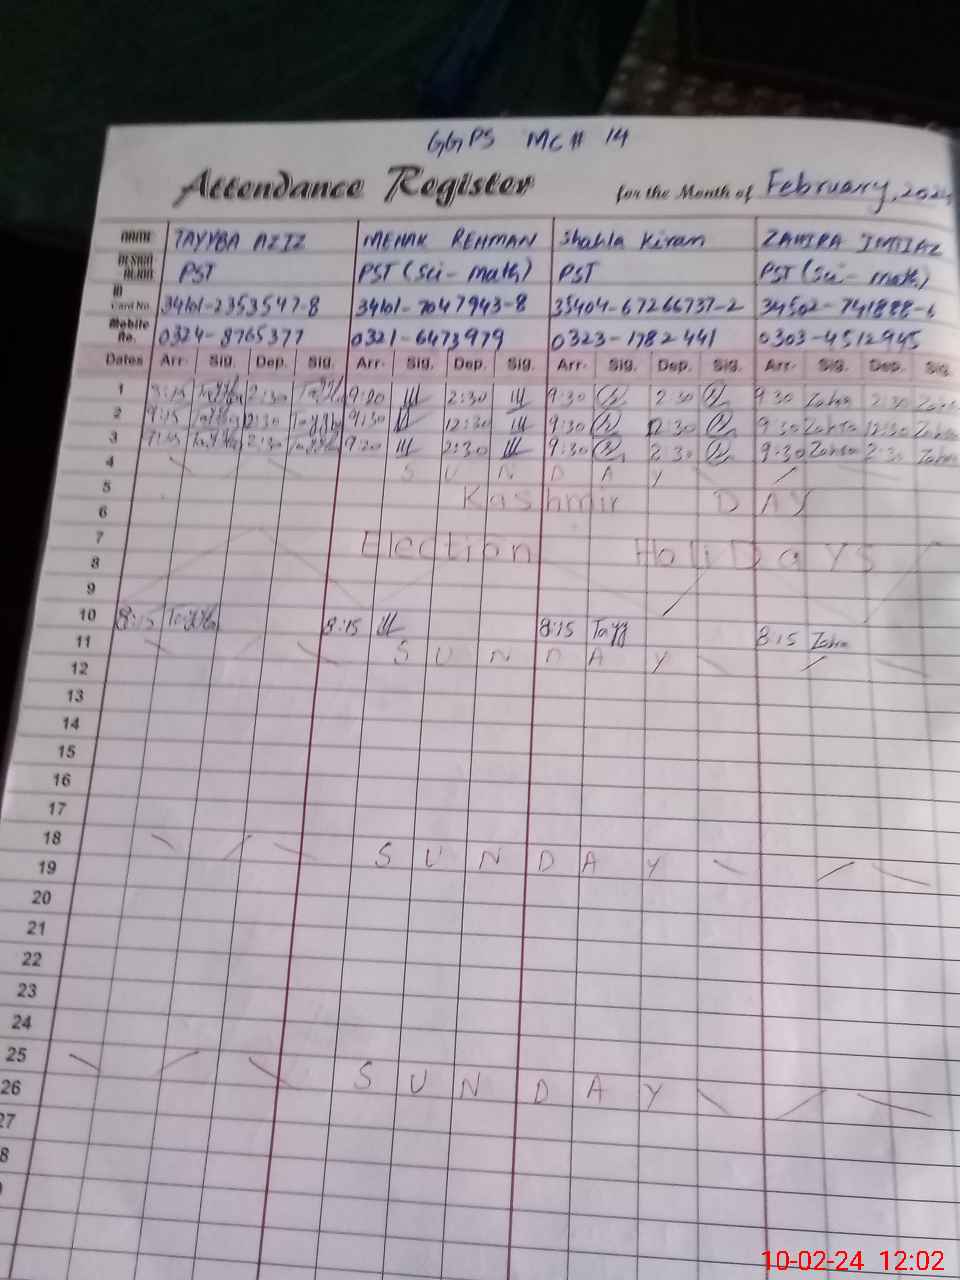 GGPS MC# 14
Attendance Register for the Month of February, 2024
NAME TAYYBA AZIZ MEHAK REHMAN Shahla Kiran ZAHIRA IMTIAZ
PST PST (Sci- math) PST PST (Sci- math)
ID
Card No. 34101-2353547-8 34101-7047943-8 35404-67266737-2 34502-741888-6
Mobile
No. 0324-8765377 0321-6473979 0323-1782441 0303-4512945
Dates Arr. Sig. Dep. Sig. Arr. Sig. Dep. Sig. Arr. Sig. Dep. Sig. Arr. Sig. Dep. Sig.
1 2:30 9:20 2:30 9:30 2:30 9:30 2:30
2 9:15 12:30 9:30 12:30 9:30 12:30 9:30 12:30
3 2:30 9:30 2:30 9:30 2:30 9:30 2:30
4 S U N D A Y
5 Kashmir DAY
6
7 Election HoliDays
8
9
10 8:15 8:15 8:15 8:15
11 S U N D A Y
12
13
14
15
16
17
18 S U N D A Y
19
20
21
22
23
24
25 S U N D A Y
26
27
8
10-02-24 12:02